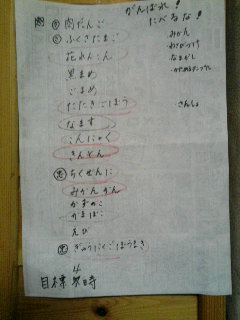 がんばれ!
たべるな!
肉だんご
ふくさたまご
花れんこん
黒まめ
ごまめ
たたきごぼう
なます
こんにゃく
きんとん
ちくぜんに
みかんかん
かずのこ
かまぼこ
えび
ぎゅうにくごぼうまき
目標 4時
みかん
なまがし
さんしょ